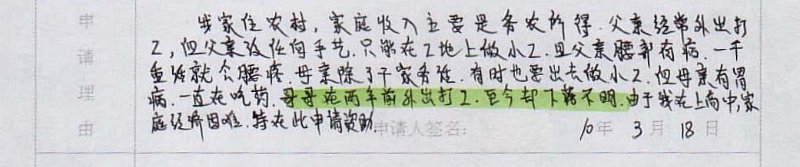 申请理由
我家住农村，家庭收入主要是务农所得．父亲经常外出打
工，但父亲没任何手艺，只能在工地上做小工．且父亲腰部有病．一干
重活就会腰疼．母亲除了干家务活．有时也要出去做小工．但母亲有胃
病．一直在吃药．哥哥在两年前外出打工．至今却下落不明．由于我在上高中，家
庭经济困难．特在此申请资助．
申请人签名：
10年 3月 18日